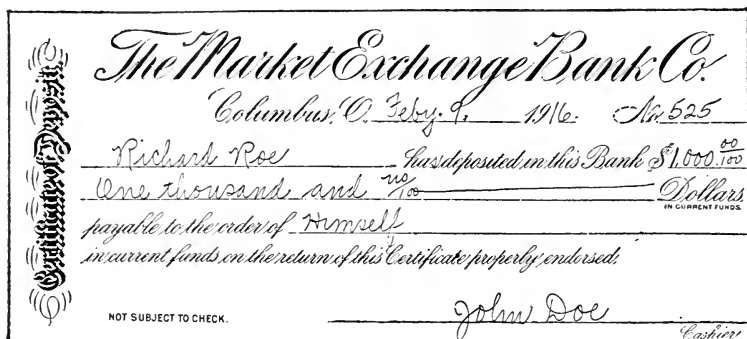 Certificate of Deposit
The Market Exchange Bank Co.
Columbus, O. Feby. 9. 1916. No. 525
Richard Roe has deposited in this Bank $1.000.00/100
One thousand and no/100 Dollars
IN CURRENT FUNDS.
payable to the order of Himself
in current funds on the return of this Certificate properly endorsed.
NOT SUBJECT TO CHECK. John Doe
Cashier